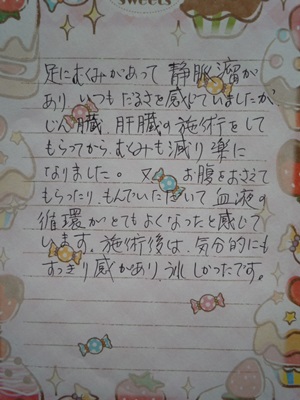 sweets
足にむくみがあって 静脈瘤が
あり いつもだるさを感じていましたが、
じん臓、肝臓の施術をして
もらってから、むくみも減り楽に
なりました。又、お腹をおさえて
もらったり、もんでいただいて血液の
循環がとてもよくなったと感じて
います。施術後は、気分的にも
すっきり感があり、うれしかったです。